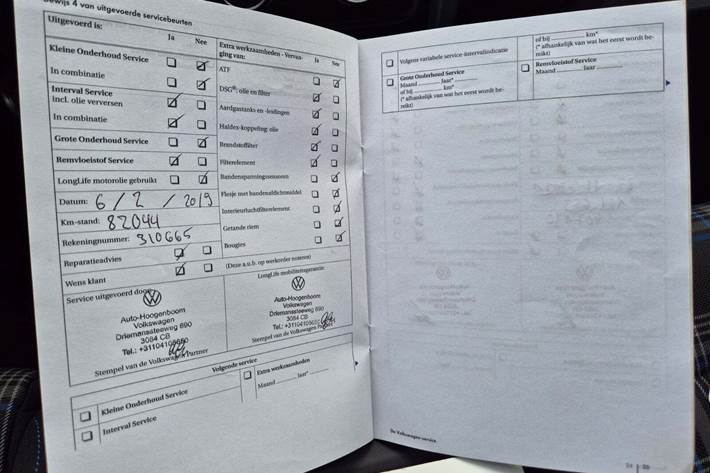 Bewijs 4 van uitgevoerde servicebeurten
Uitgevoerd is:
Ja Nee
Kleine Onderhoud Service
In combinatie
Interval Service
incl. olie verversen
In combinatie
Grote Onderhoud Service
Remvloeistof Service
LongLife motorolie gebruikt
Datum: 6 / 2 / 2019
Km-stand: 82044
Rekeningnummer: 310665
Reparatieadvies
Wens klant
Extra werkzaamheden - Vervan-
ging van:
Ja Nee
ATF
DSG®: olie en filter
Aardgastanks en -leidingen
Haldex-koppeling: olie
Brandstoffilter
Filterelement
Bandenspanningssensoren
Flesje met bandenafdichtmiddel
Interieurluchtfilterelement
Getande riem
Bougies
(Deze a.u.b. op werkorder noteren)
Service uitgevoerd door:
Auto-Hoogenboom
Volkswagen
Driemanssteeweg 690
3084 CB
Stempel van de Volkswagen Partner
LongLife mobiliteitsgarantie:
Auto-Hoogenboom
Volkswagen
Driemanssteeweg 690
3084 CB
Stempel van de Volkswagen Partner
Volgende service
Kleine Onderhoud Service
Interval Service
Extra werkzaamheden
Maand jaar*
Volgens variabele service-intervalindicatie
Grote Onderhoud Service
Maand jaar*
of bij km*
(* afhankelijk van wat het eerst wordt be-
reikt)
of bij km*
(* afhankelijk van wat het eerst wordt be-
reikt)
Remvloeistof Service
Maand jaar
De Volkswagen-service